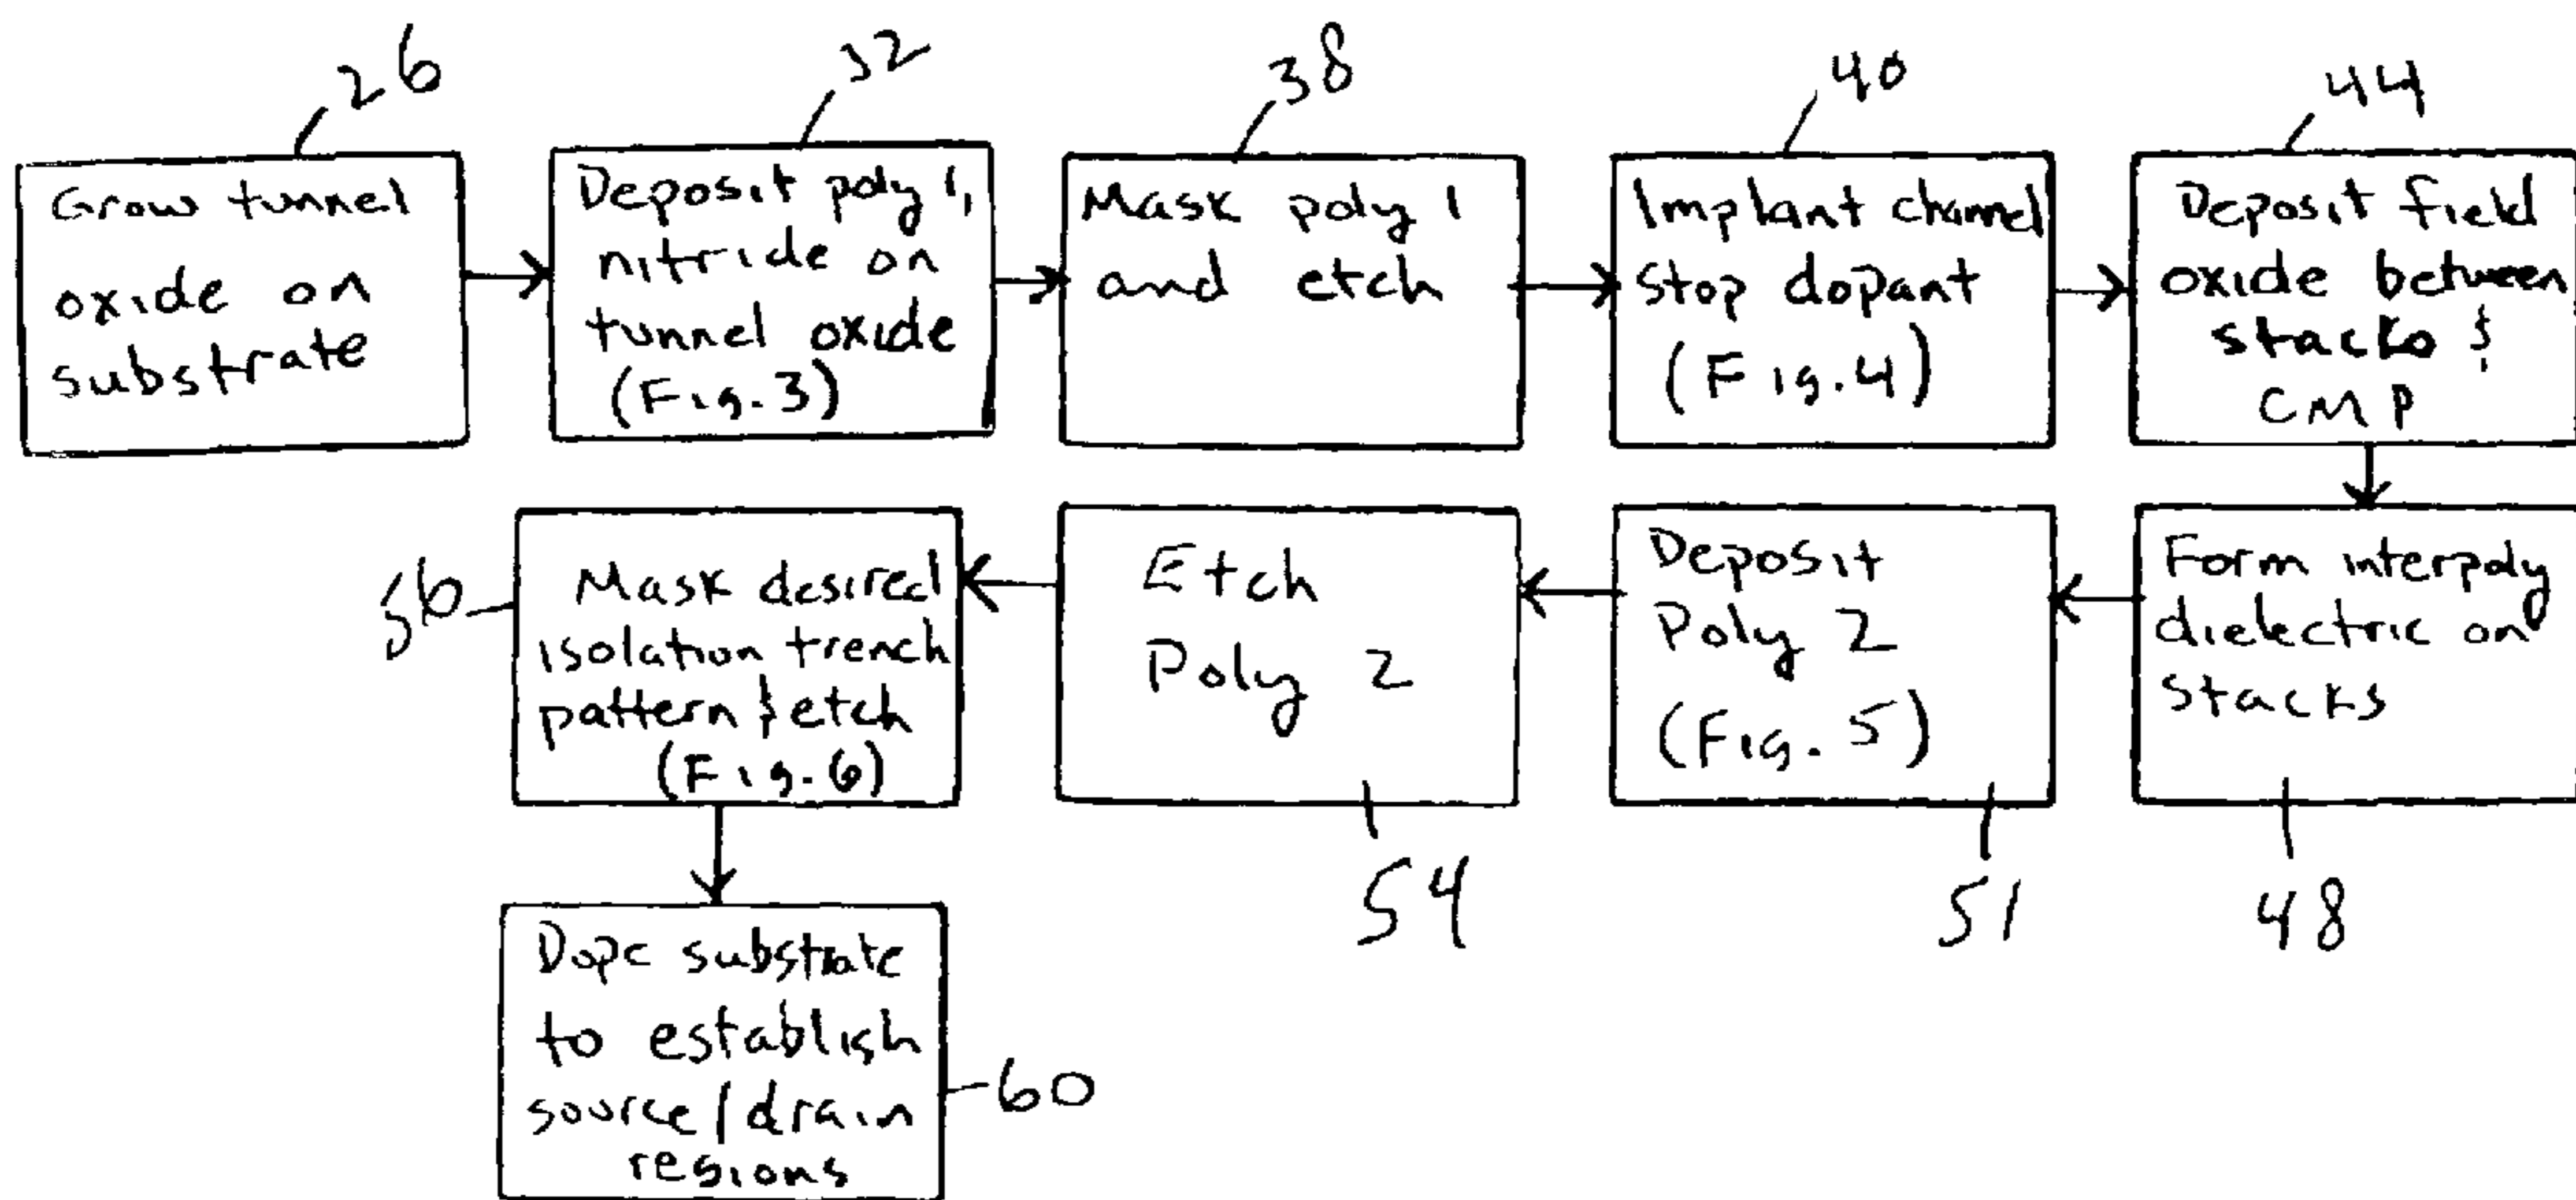 26
32
38
40
44
Grow tunnel
oxide on
substrate
Deposit poly 1,
nitride on
tunnel oxide
(Fig. 3)
Mask poly 1
and etch
Implant channel
stop dopant
(Fig. 4)
Deposit field
oxide between
stacks &
CMP
Form interpoly
dielectric on
stacks
48
Deposit
Poly 2
(Fig. 5)
51
Etch
Poly 2
54
Mask desired
isolation trench
pattern & etch
(Fig. 6)
56
Dope substrate
to establish
source/drain
regions
60